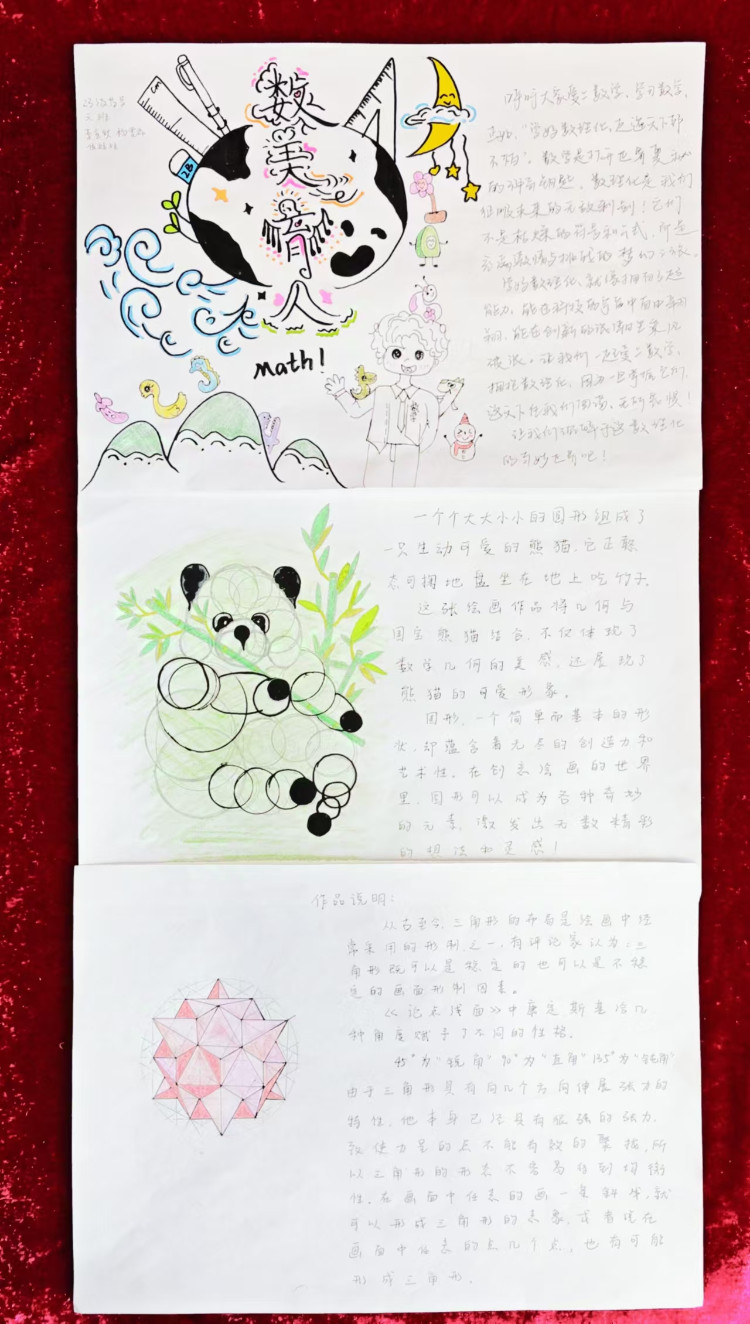 六班
cm
2B
数美育人
Math!
呼吁大家爱上数学、学习数学,
“学好数理化,走遍天下都
不怕”。数学是打开世界奥
的神奇钥匙,数理化是我们
征服未来的无敌利剑!它们
不是枯燥的符号和公式,而是
充满激情与挑战的梦幻之旅。
学好数理化,就像拥有了超
能力,能在科技的宇宙中自由翱
翔,能在创新的浪潮里乘风
破浪。让我们一起爱上数学,
拥抱数理化,因为一旦掌握它们,
这天下任我们闯荡,无所畏惧!
让我们了解这数理化
的奇妙世界吧!
一个个大大小小的圆形组成了
一只生动可爱的熊猫,它正憨
态可掬地盘坐在地上吃竹子
这张绘画作品将几何与
国宝熊猫结合,不仅体现了
数学几何的美感,还展现了
熊猫的可爱形象。
圆形,一个简单而基本的形
状,却蕴含着无尽的创造力和
艺术性。在创意绘画的世界
里,圆形可以成为各种奇妙
的元素,激发出无数精彩
的想法和灵感!
作品说明:
从古至今,三角形的布局是绘画中经
常采用的形制之一,有评论家认为:三
角形既可以是稳定的也可以是不稳
定的画面形制因素。
《论点线面》中康定斯基给几
种角度赋予了不同的性格。
45°为“锐角”90°为“直角”135°为“钝角”
由于三角形具有向几个方向伸展张力的
特性,他本身已经具有很强的张力,
致使力量的点不能有效的聚拢,所
以三角形的形态不容易得到均衡
性。在画面中任意的画一条斜线,就
可以形成三角形的意象,或者说在
画面中任意的点几个点,也有可能
形成三角形。